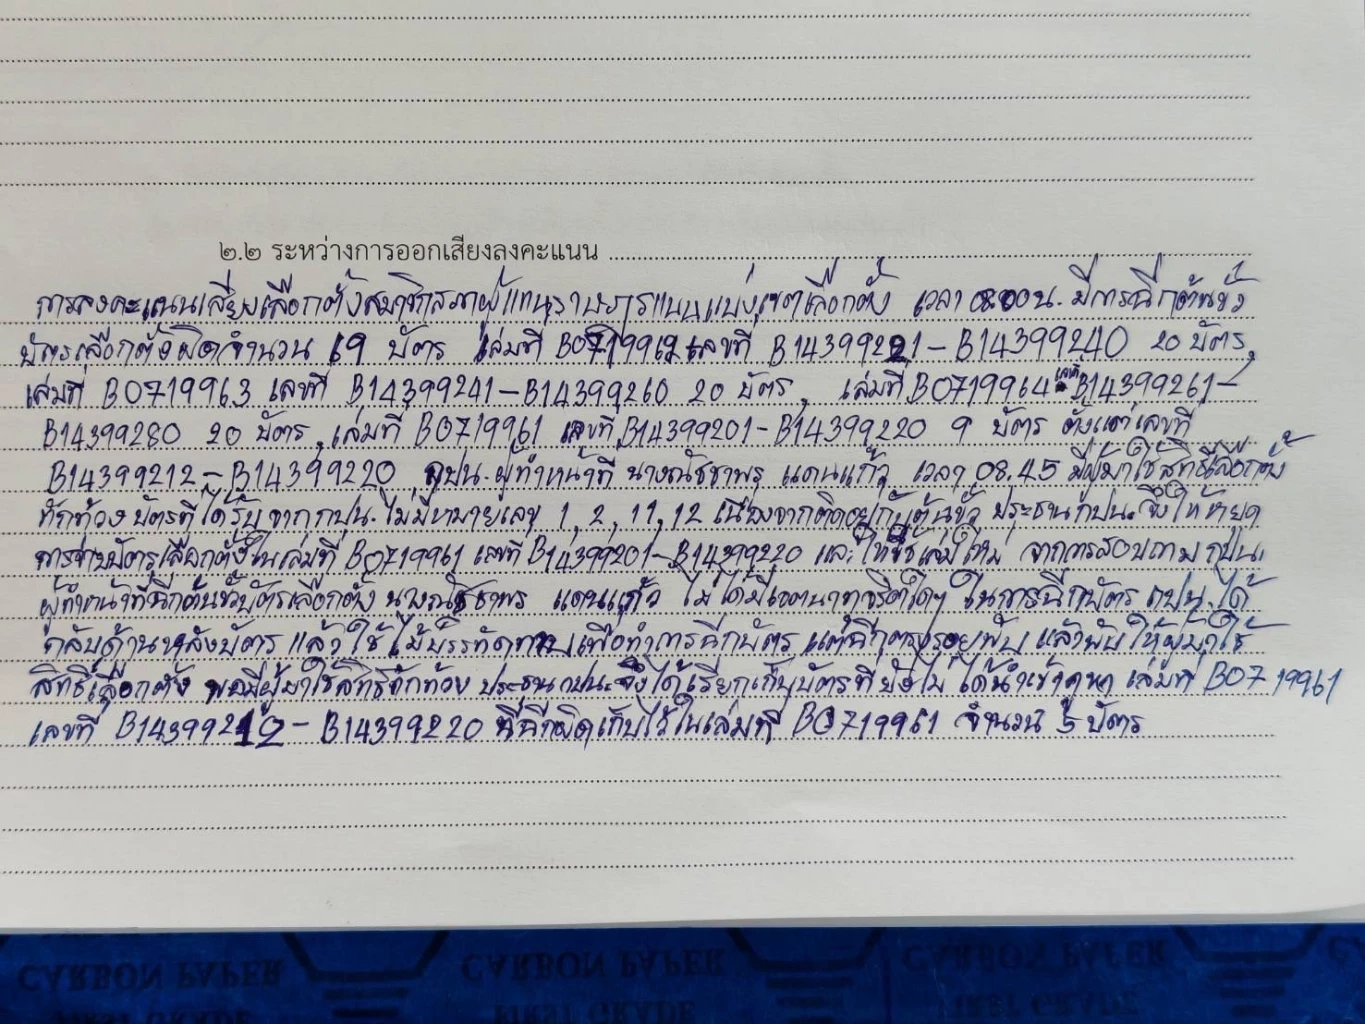 ๒.๒ ระหว่างการออกเสียงลงคะแนน
การลงคะแนนเสียงเลือกตั้งสมาชิกสภาผู้แทนราษฎรแบบแบ่งเขตเลือกตั้ง เวลา 08.00 น. มีการฉีกต้นขั้ว
บัตรเลือกตั้งผิดจำนวน 69 บัตร เล่มที่ B0719962 เลขที่ B14399221-B14399240 20 บัตร,
เล่มที่ B0719963 เลขที่ B14399241-B14399260 20 บัตร, เล่มที่ B0719964 เลขที่ B14399261-
B14399280 20 บัตร, เล่มที่ B0719961 เลขที่ B14399201-B14399220 9 บัตร ตั้งแต่เลขที่
B14399212-B14399220 กปน. ผู้ทำหน้าที่ นางณัชชาพร แดนแก้ว เวลา 08.45 มีผู้มาใช้สิทธิเลือกตั้ง
ทักท้วง บัตรที่ได้รับ จาก กปน. ไม่มีหมายเลข 1, 2, 11, 12 เนื่องจากติดอยู่กับต้นขั้ว ประธาน กปน. จึงให้หยุด
การจ่ายบัตรเลือกตั้งในเล่มที่ B0719961 เลขที่ B14399201-B14399220 และให้ใช้เล่มใหม่ จากการสอบถาม กปน.
ผู้ทำหน้าที่ฉีกต้นขั้วบัตรเลือกตั้ง นางณัชชาพร แดนแก้ว ไม่ได้มีเจตนาทุจริตใดๆ ในการฉีกบัตร กปน. ได้
กลับด้านหลังบัตร แล้วใช้ไม้บรรทัดทาบเพื่อทำการฉีกบัตร แต่ฉีกตรงรอยพับ แล้วพับให้ผู้มาใช้
สิทธิเลือกตั้ง พอมีผู้มาใช้สิทธิทักท้วง ประธาน กปน. จึงได้เรียกเก็บบัตรที่ยังไม่ได้นำเข้าคูหา เล่มที่ B0719961
เลขที่ B14399212-B14399220 ที่ฉีกผิดเก็บไว้ในเล่มที่ B0719961 จำนวน 5 บัตร
CARBON PAPER
FIRST GRADE
CARBON PAPER
FIRST GRADE
CARBON PAPER
FIRST GRADE